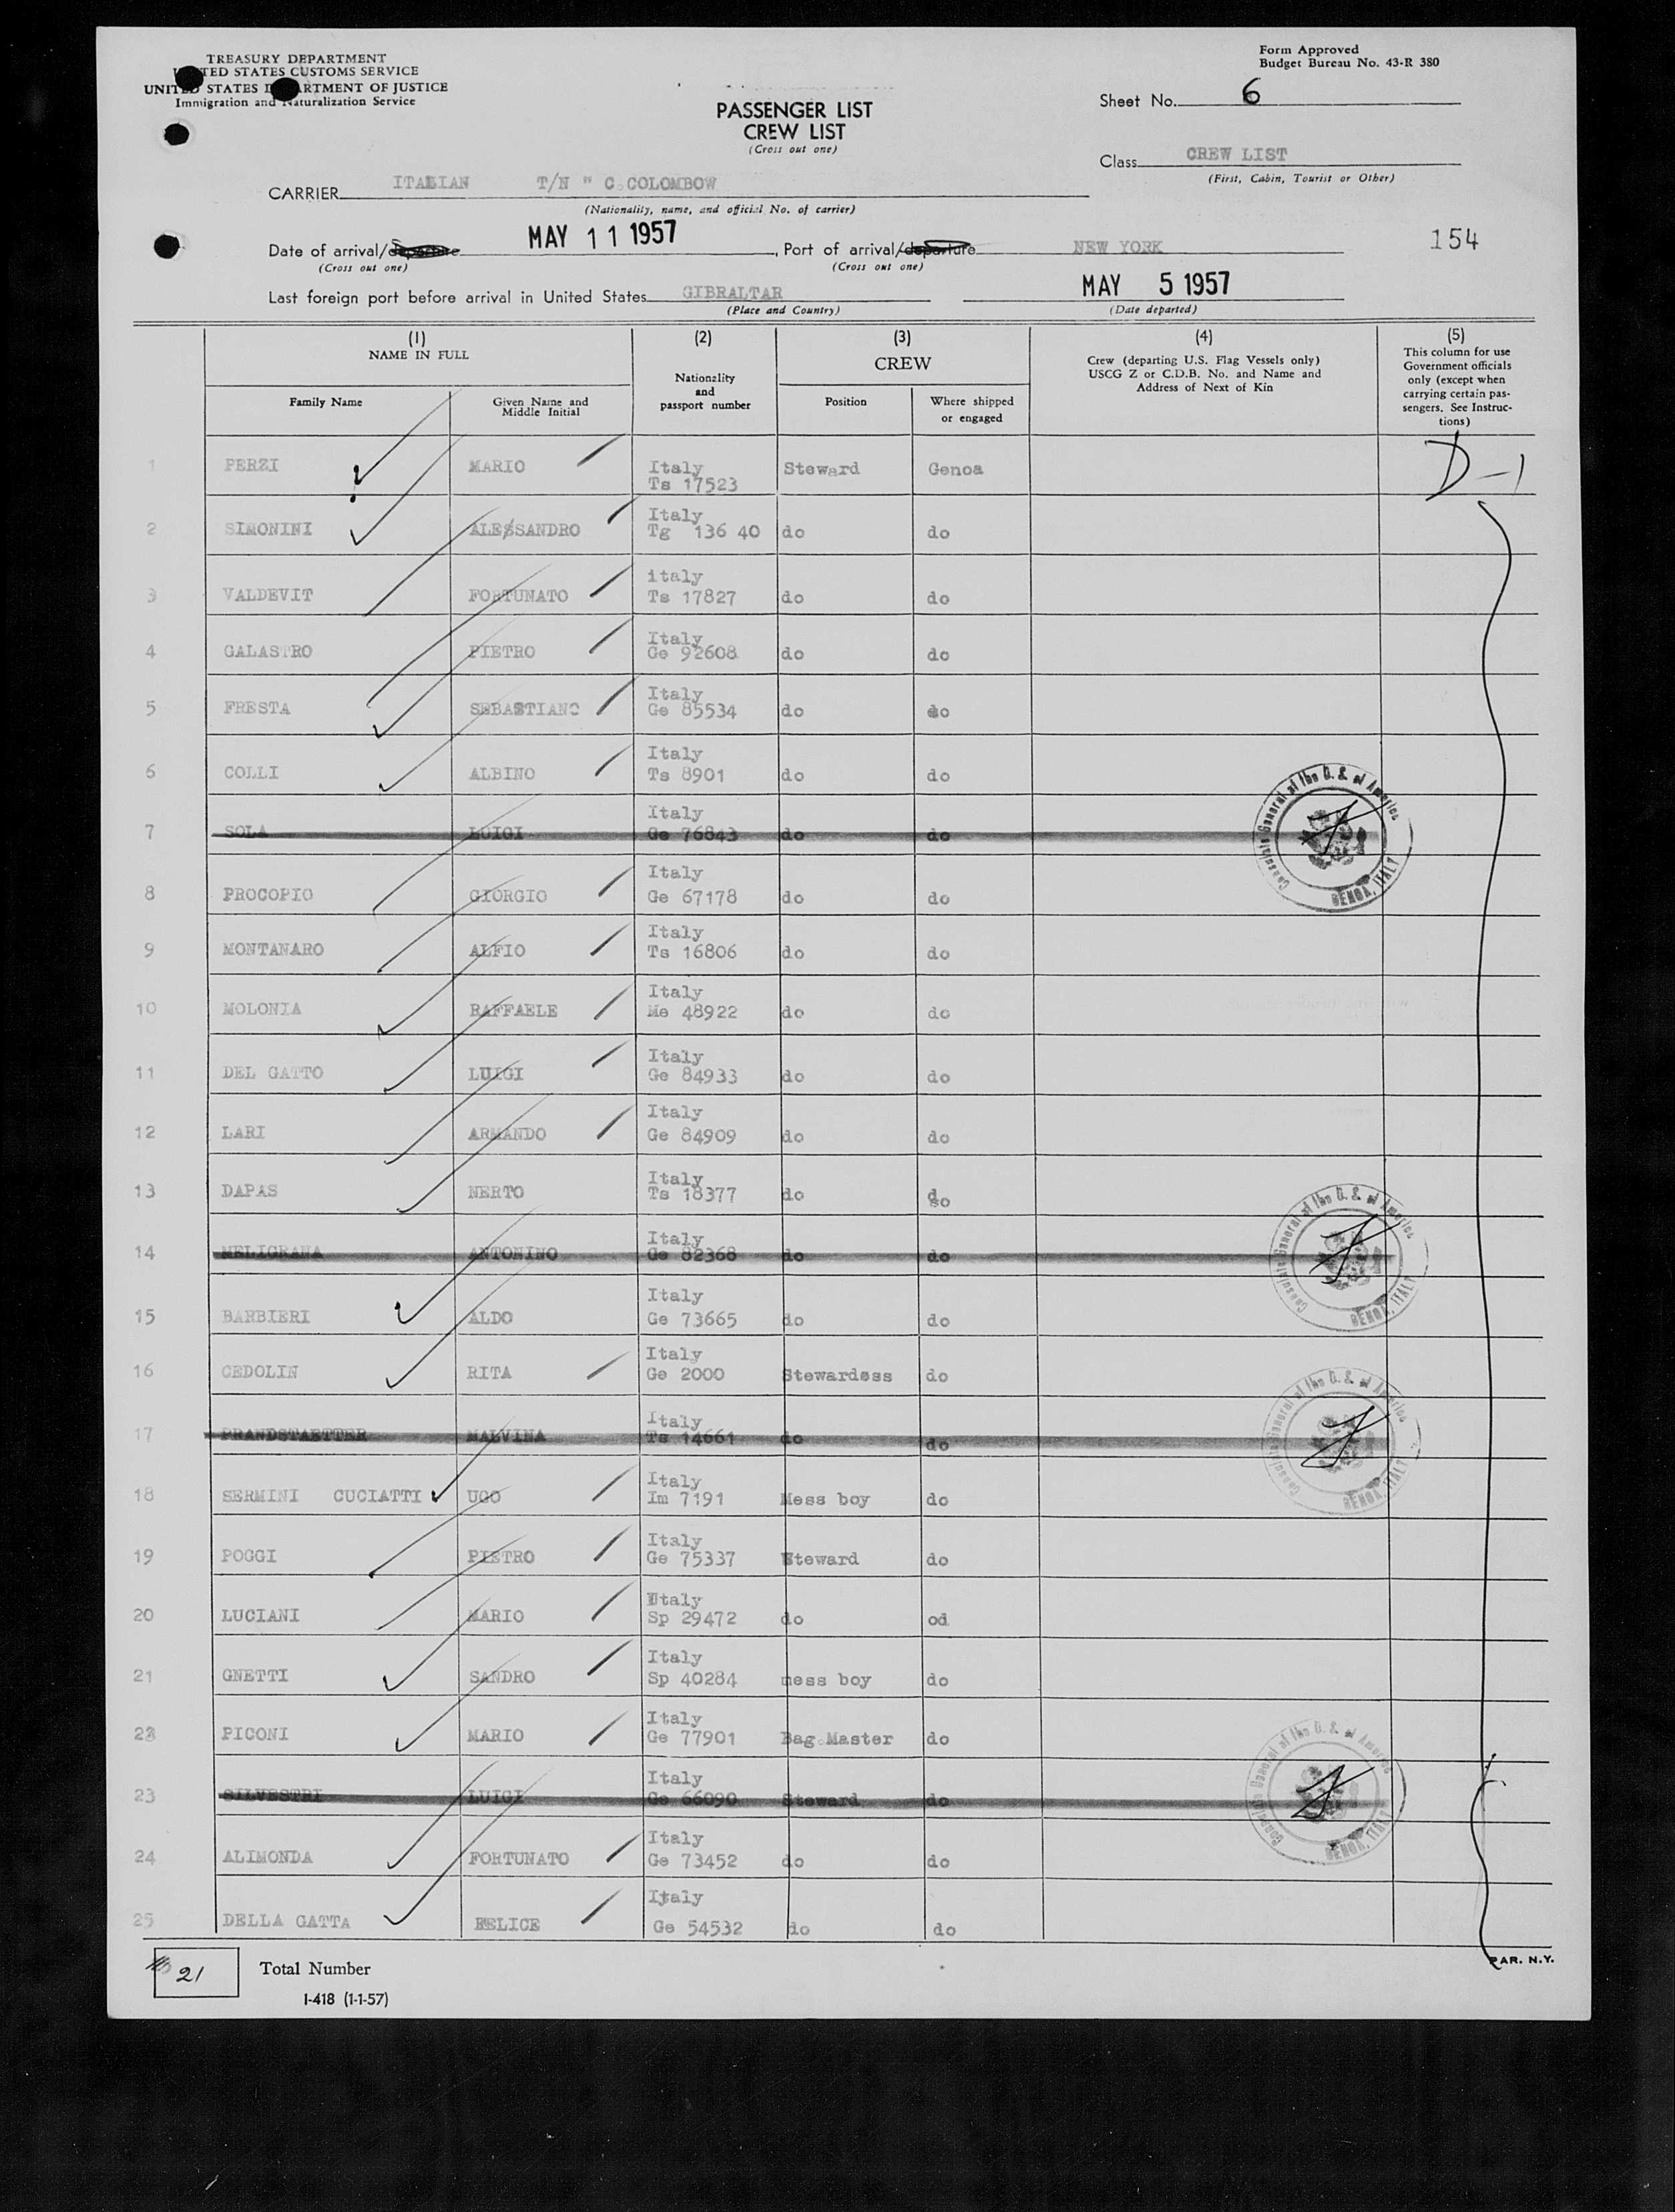 TREASURY DEPARTMENT
UNITED STATES CUSTOMS SERVICE
UNITED STATES DEPARTMENT OF JUSTICE
Immigration and Naturalization Service
Form Approved
Budget Bureau No. 43-R 380
PASSENGER LIST
CREW LIST
(Cross out one)
Sheet No. 6
Class CREW LIST
(First, Cabin, Tourist or Other)
CARRIER ITALIAN T/N " C.COLOMBOW
(Nationality, name, and official No. of carrier)
Date of arrival/departure MAY 11 1957, Port of arrival/departure NEW YORK 154
(Cross out one) (Cross out one)
Last foreign port before arrival in United States GIBRALTAR MAY 5 1957
(Place and Country) (Date departed)
(1) NAME IN FULL
Family Name
Given Name and Middle Initial
(2)
Nationality and passport number
(3) CREW
Position
Where shipped or engaged
(4)
Crew (departing U.S. Flag Vessels only)
USCG Z or C.D.B. No. and Name and
Address of Next of Kin
(5)
This column for use
Government officials
only (except when
carrying certain pas-
sengers. See Instruc-
tions)
1 PERZI MARIO Italy Ts 17523 Steward Genoa D-1
2 SIMONINI ALESSANDRO Italy Tg 136 40 do do
3 VALDEVIT FORTUNATO italy Ts 17827 do do
4 GALASTRO PIETRO Italy Ge 92608 do do
5 FRESTA SEBASTIANO Italy Ge 85534 do do
6 COLLI ALBINO Italy Ts 8901 do do
7 SOLA LUIGI Italy Ge 76843 do do
Consulate General of the U. S. of America GENOA, ITALY
8 PROCOPIO GIORGIO Italy Ge 67178 do do
9 MONTANARO ALFIO Italy Ts 16806 do do
10 MOLONIA RAFFAELE Italy Me 48922 do do
11 DEL GATTO LUIGI Italy Ge 84933 do do
12 LARI ARMANDO Italy Ge 84909 do do
13 DAPAS NERTO Italy Ts 18377 do do
14 MELIGRANA ANTONINO Italy Ge 82368 do do
Consulate General of the U. S. of America GENOA, ITALY
15 BARBIERI ALDO Italy Ge 73665 do do
16 CEDOLIN RITA Italy Ge 2000 Stewardess do
17 PRANDSTAETTER MALVINA Italy Ts 14661 do do
Consulate General of the U. S. of America GENOA, ITALY
18 SERMINI CUCIATTI UGO Italy Im 7191 Mess boy do
19 POGGI PIETRO Italy Ge 75337 Steward do
20 LUCIANI MARIO Italy Sp 29472 do od
21 GNETTI SANDRO Italy Sp 40284 mess boy do
22 PICONI MARIO Italy Ge 77901 Bag.Master do
23 SILVESTRI LUIGI Italy Ge 66090 Steward do
Consulate General of the U. S. of America GENOA, ITALY
24 ALIMONDA FORTUNATO Italy Ge 73452 do do
25 DELLA GATTA FELICE Italy Ge 54532 do do
21 Total Number
I-418 (1-1-57)
PAR. N.Y.